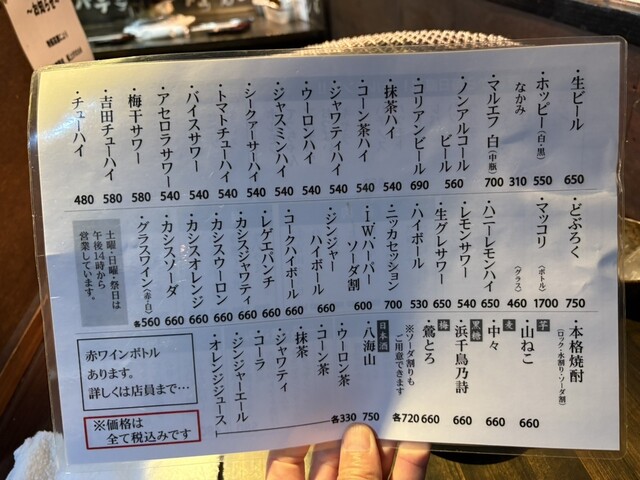 ～お知らせ～
・生ビール 650
・ホッピー(白・黒) 550
なかみ 310
・マルエフ 白(中瓶) 700
・ノンアルコールビール 560
・コリアンビール 690
・抹茶ハイ 540
・コーン茶ハイ 540
・ジャワティハイ 540
・ウーロンハイ 540
・ジャスミンハイ 540
・シークァーサーハイ 540
・トマトチューハイ 540
・バイスサワー 540
・アセロラサワー 540
・梅干サワー 580
・吉田チューハイ 580
・チューハイ 480
・どぶろく 750
・マッコリ (ボトル) 1700
(グラス) 460
・ハニーレモンハイ 650
・レモンサワー 540
・生グレサワー 650
・ハイボール 530
・ニッカセッション 700
・I.W.ハーパーソーダ割 600
・ジンジャーハイボール 660
・コークハイボール 660
・レゲエパンチ 660
・カシスジャワティ 660
・カシスウーロン 660
・カシスオレンジ 660
・カシスソーダ 660
・グラスワイン(赤・白) 各560
土曜・日曜・祭日は
午後14時から
営業しています。
・本格焼酎
(ロック・水割り・ソーダ割)
芋
・山ねこ 660
麦
・中々 660
黒糖
・浜千鳥乃詩 660
梅
・鶯とろ 660
※ソーダ割りも
ご用意できます 各720
日本酒
・八海山 750
・ウーロン茶
・コーン茶
・抹茶
・ジャワティ
・コーラ
・ジンジャーエール
・オレンジジュース
各330
赤ワインボトル
あります。
詳しくは店員まで…
※価格は
全て税込みです